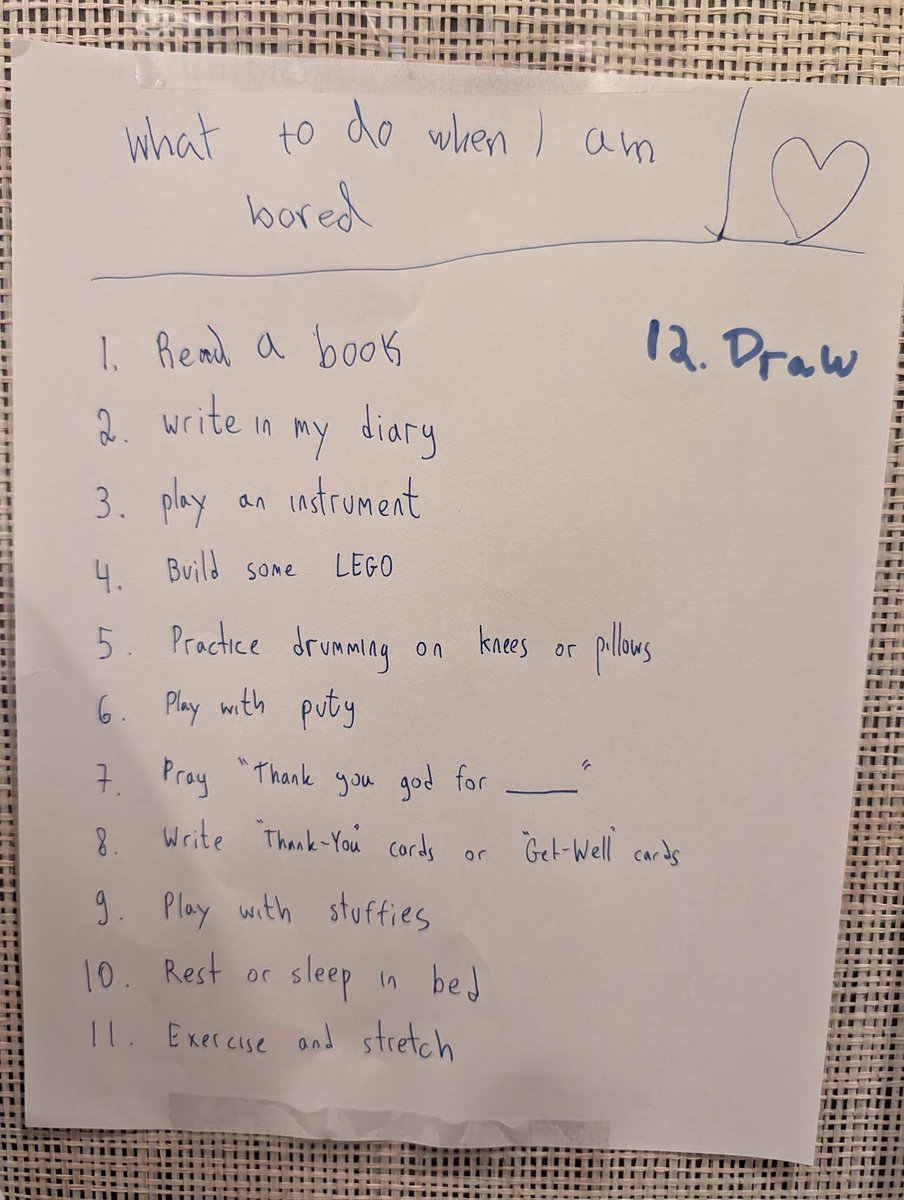 What to do when I am
bored
1. Read a book
12. Draw
2. write in my diary
3. play an instrument
4. Build some LEGO
5. Practice drumming on knees or pillows
6. Play with puty
7. Pray "Thank you god for _____"
8. Write "Thank-You" cards or "Get-Well" cards
9. Play with stuffies
10. Rest or sleep in bed
11. Exercise and stretch